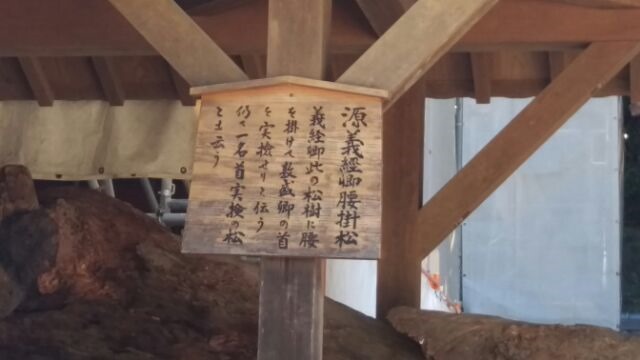 源義經卿腰掛松
義經卿此の松樹に腰
を掛けて敦盛卿の首
を実檢せりと伝う
仍て一名首実検の松
と云う